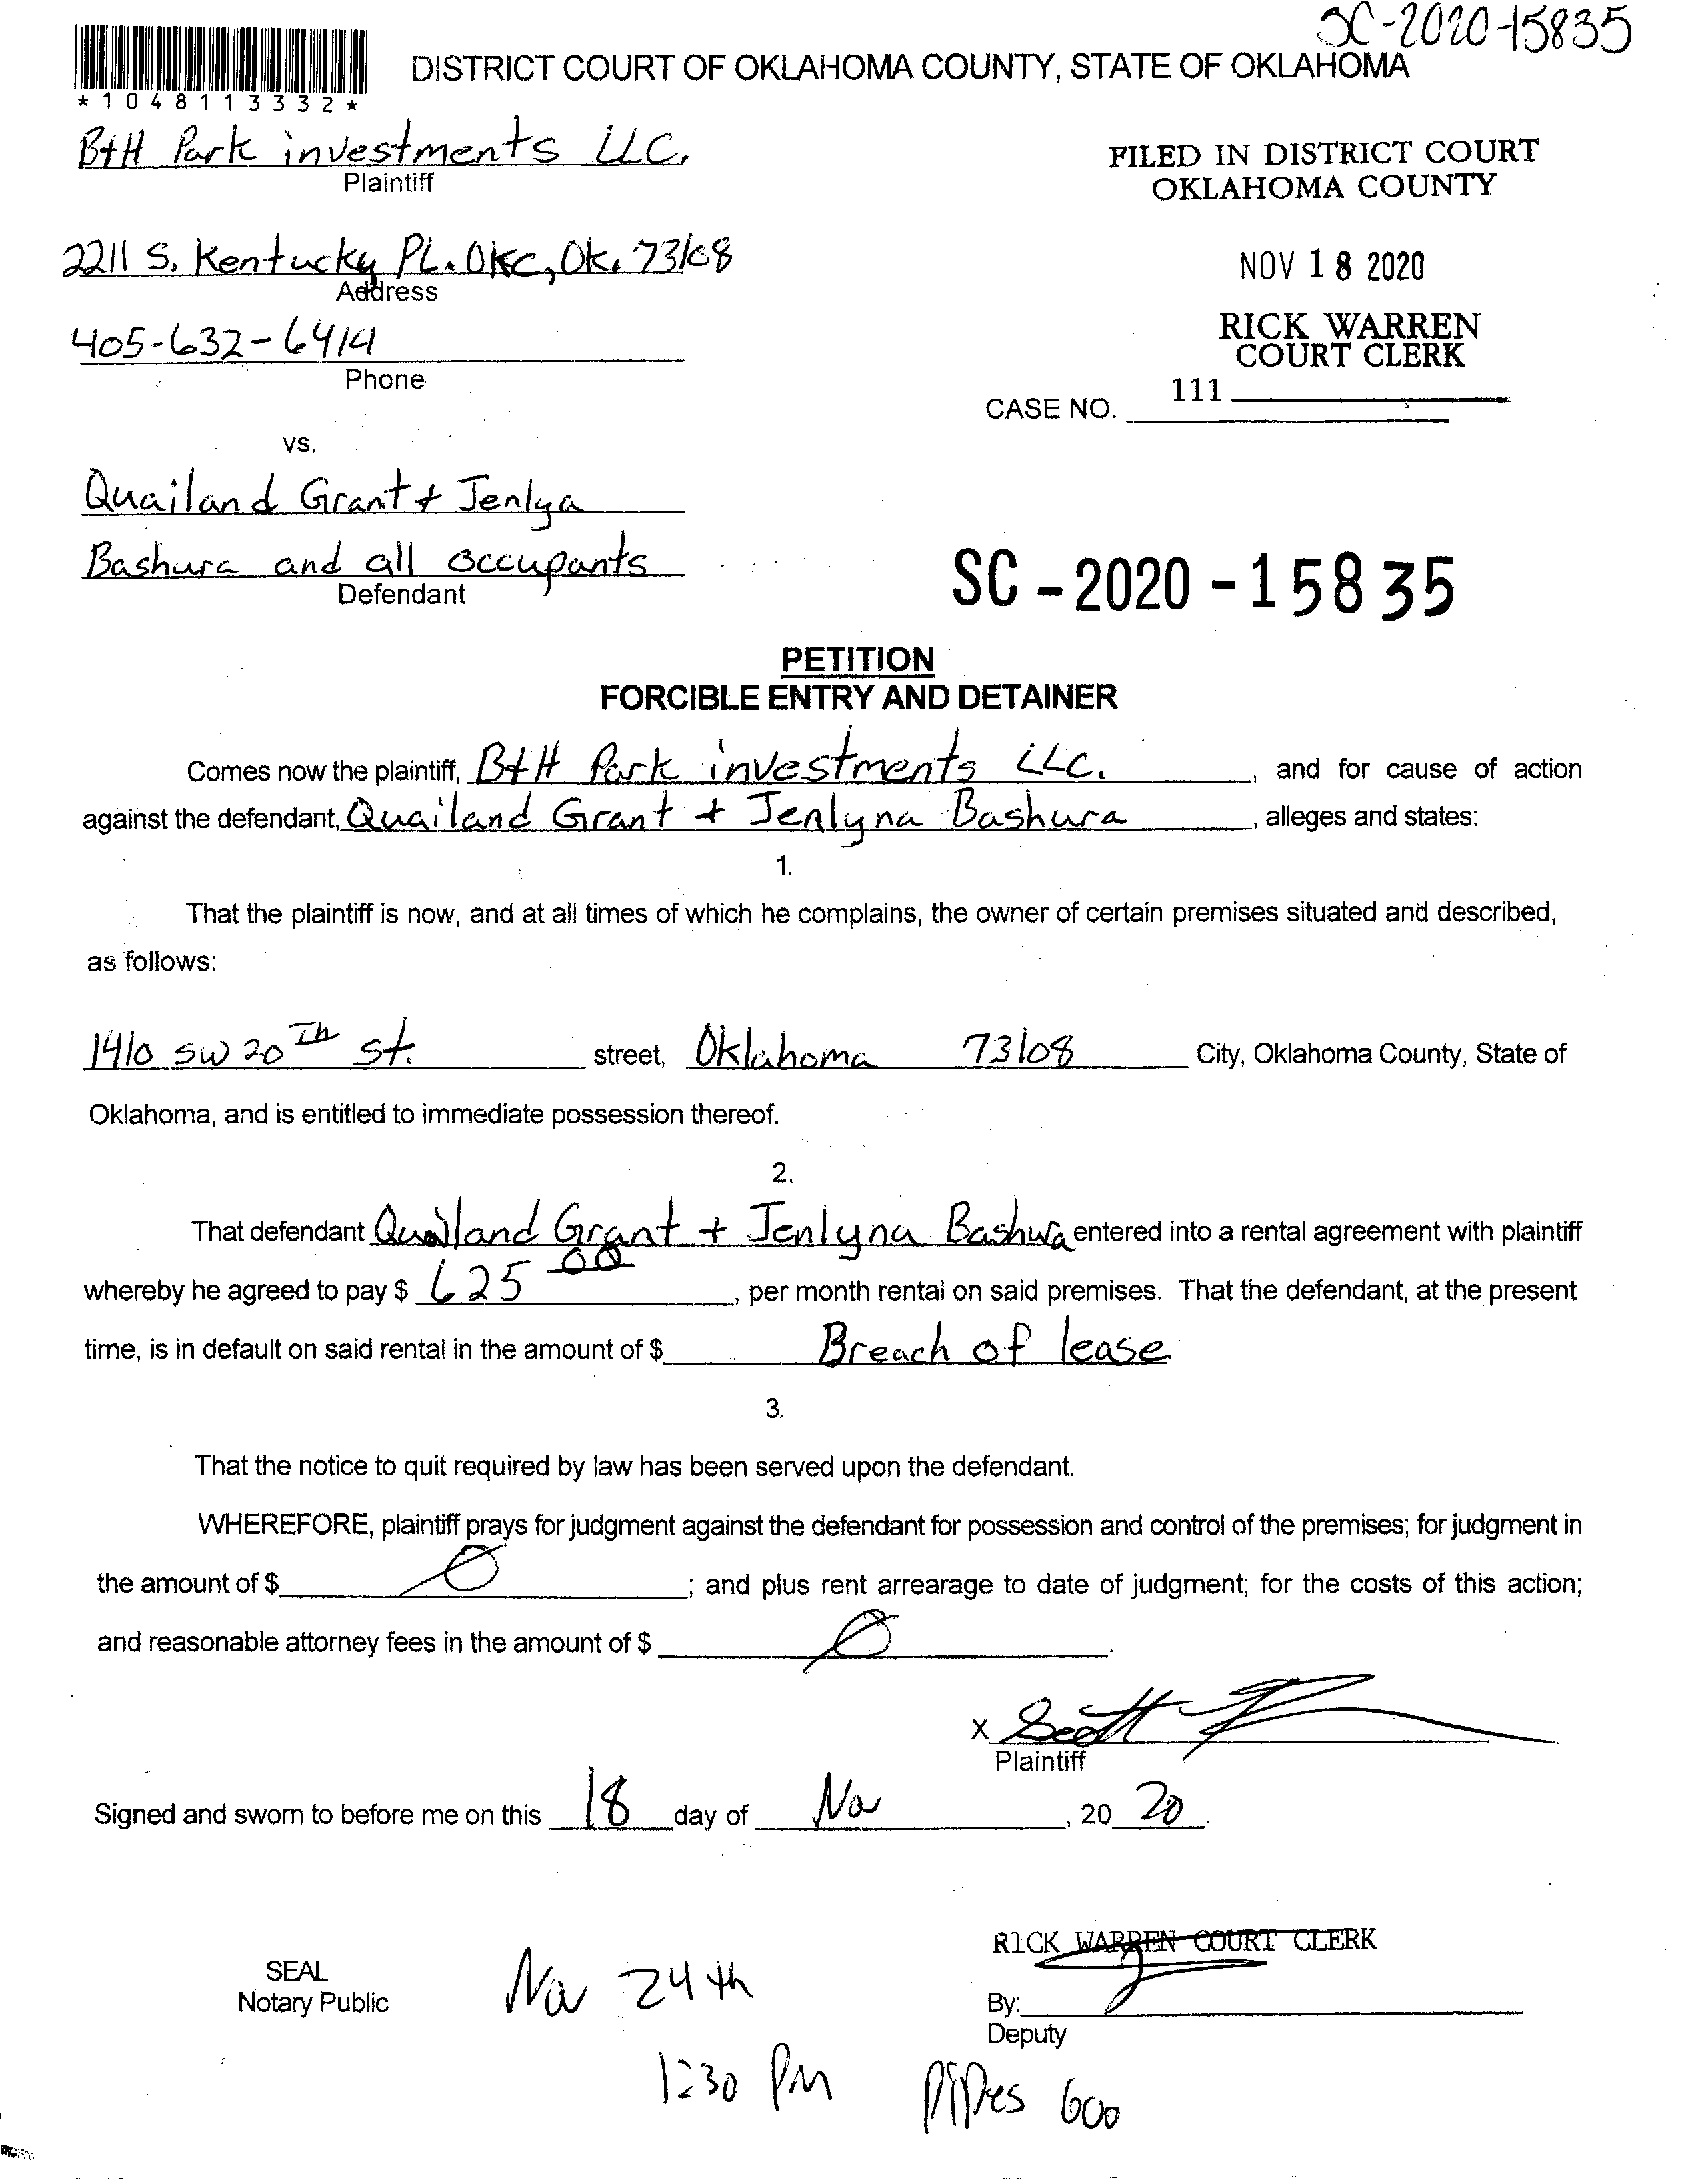 SC-2020-15835
DISTRICT COURT OF OKLAHOMA COUNTY, STATE OF OKLAHOMA
*1048113332*
B+H Park investments LLC.
Plaintiff
FILED IN DISTRICT COURT
OKLAHOMA COUNTY
2211 S. Kentucky PL. OKC, Ok. 73108
Address
NOV 18 2020
405-632-6414
Phone
RICK WARREN
COURT CLERK
111
CASE NO.
vs.
Quailand Grant + Jenlya
Bashura and all occupants
Defendant
SC-2020-15835
PETITION
FORCIBLE ENTRY AND DETAINER
Comes now the plaintiff, B+H Park investments LLC. , and for cause of action
against the defendant, Quailand Grant + Jenlyna Bashura , alleges and states:
1.
That the plaintiff is now, and at all times of which he complains, the owner of certain premises situated and described,
as follows:
1410 SW 20th St. street, Oklahoma 73108 City, Oklahoma County, State of
Oklahoma, and is entitled to immediate possession thereof.
2.
That defendant Quailand Grant + Jenlyna Bashura entered into a rental agreement with plaintiff
whereby he agreed to pay $ 625 00 , per month rental on said premises. That the defendant, at the present
time, is in default on said rental in the amount of $ Breach of lease
3.
That the notice to quit required by law has been served upon the defendant.
WHEREFORE, plaintiff prays for judgment against the defendant for possession and control of the premises; for judgment in
the amount of $ 0 ; and plus rent arrearage to date of judgment; for the costs of this action;
and reasonable attorney fees in the amount of $ 0 .
X Scott
Plaintiff
Signed and sworn to before me on this 18 day of Nov , 20 20 .
RICK WARREN COURT CLERK
SEAL
Notary Public
Nov 24th
By:
Deputy
1:30 PM Pipes 600